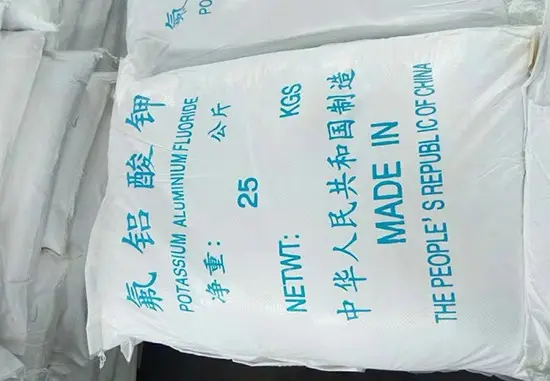 氟铝酸钾
POTASSIUM ALUMINIUM FLUORIDE
净重: 公斤
25
NETWT: KGS
中华人民共和国制造
MADE IN
THE PEOPLE'S REPUBLIC OF CHINA
氟
PO